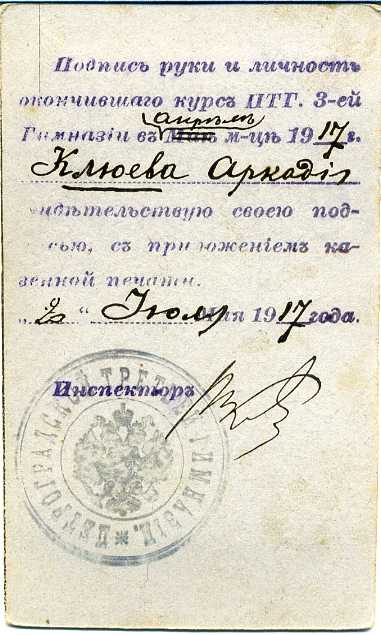 Подпись руки и личность
окончившаго курс ПТГ. 3-ей
апрѣлѣ
Гимназіи въ Маѣ м-цѣ 1917 г.
Клюева Аркадія
свидѣтельствую своею под-
сью, съ приложеніемъ ка-
зенной печати.
„2“ Іюля Мая 1917 года.
Инспекторъ
ПЕТРОГРАДСКОЙ ТРЕТЬЕЙ ГИМНАЗІИ